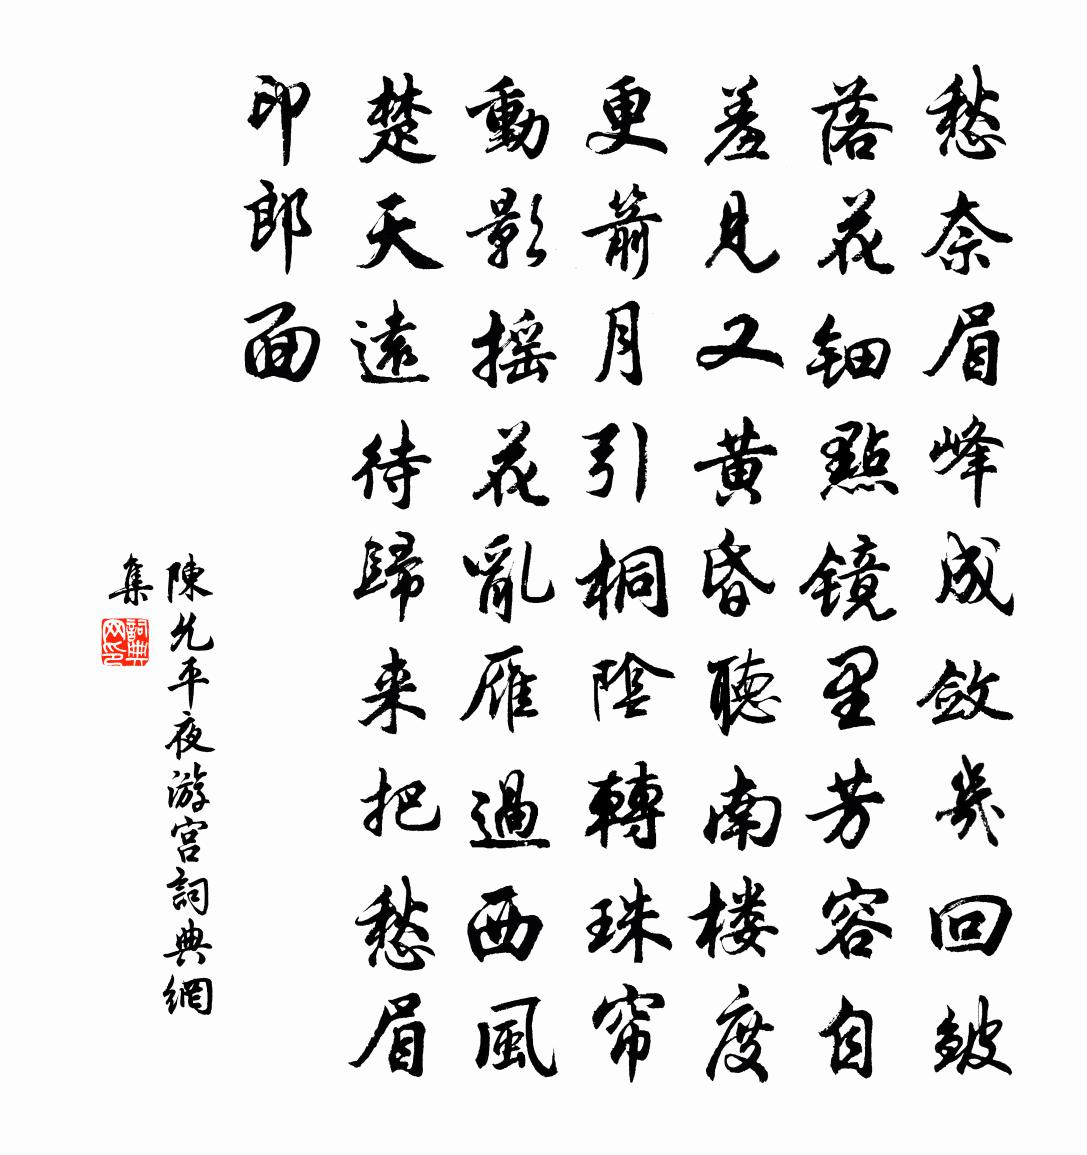 愁奈眉峰成斂幾回皴
落花鈿點鏡里芳容自
羞見又黃昏聽南楼度
更箭月引桐陰轉珠帘
動影搖花亂雁過西風
楚天遠待歸来把愁眉
印郎面
陳允平夜游宮詞典網
集
詞典
网印